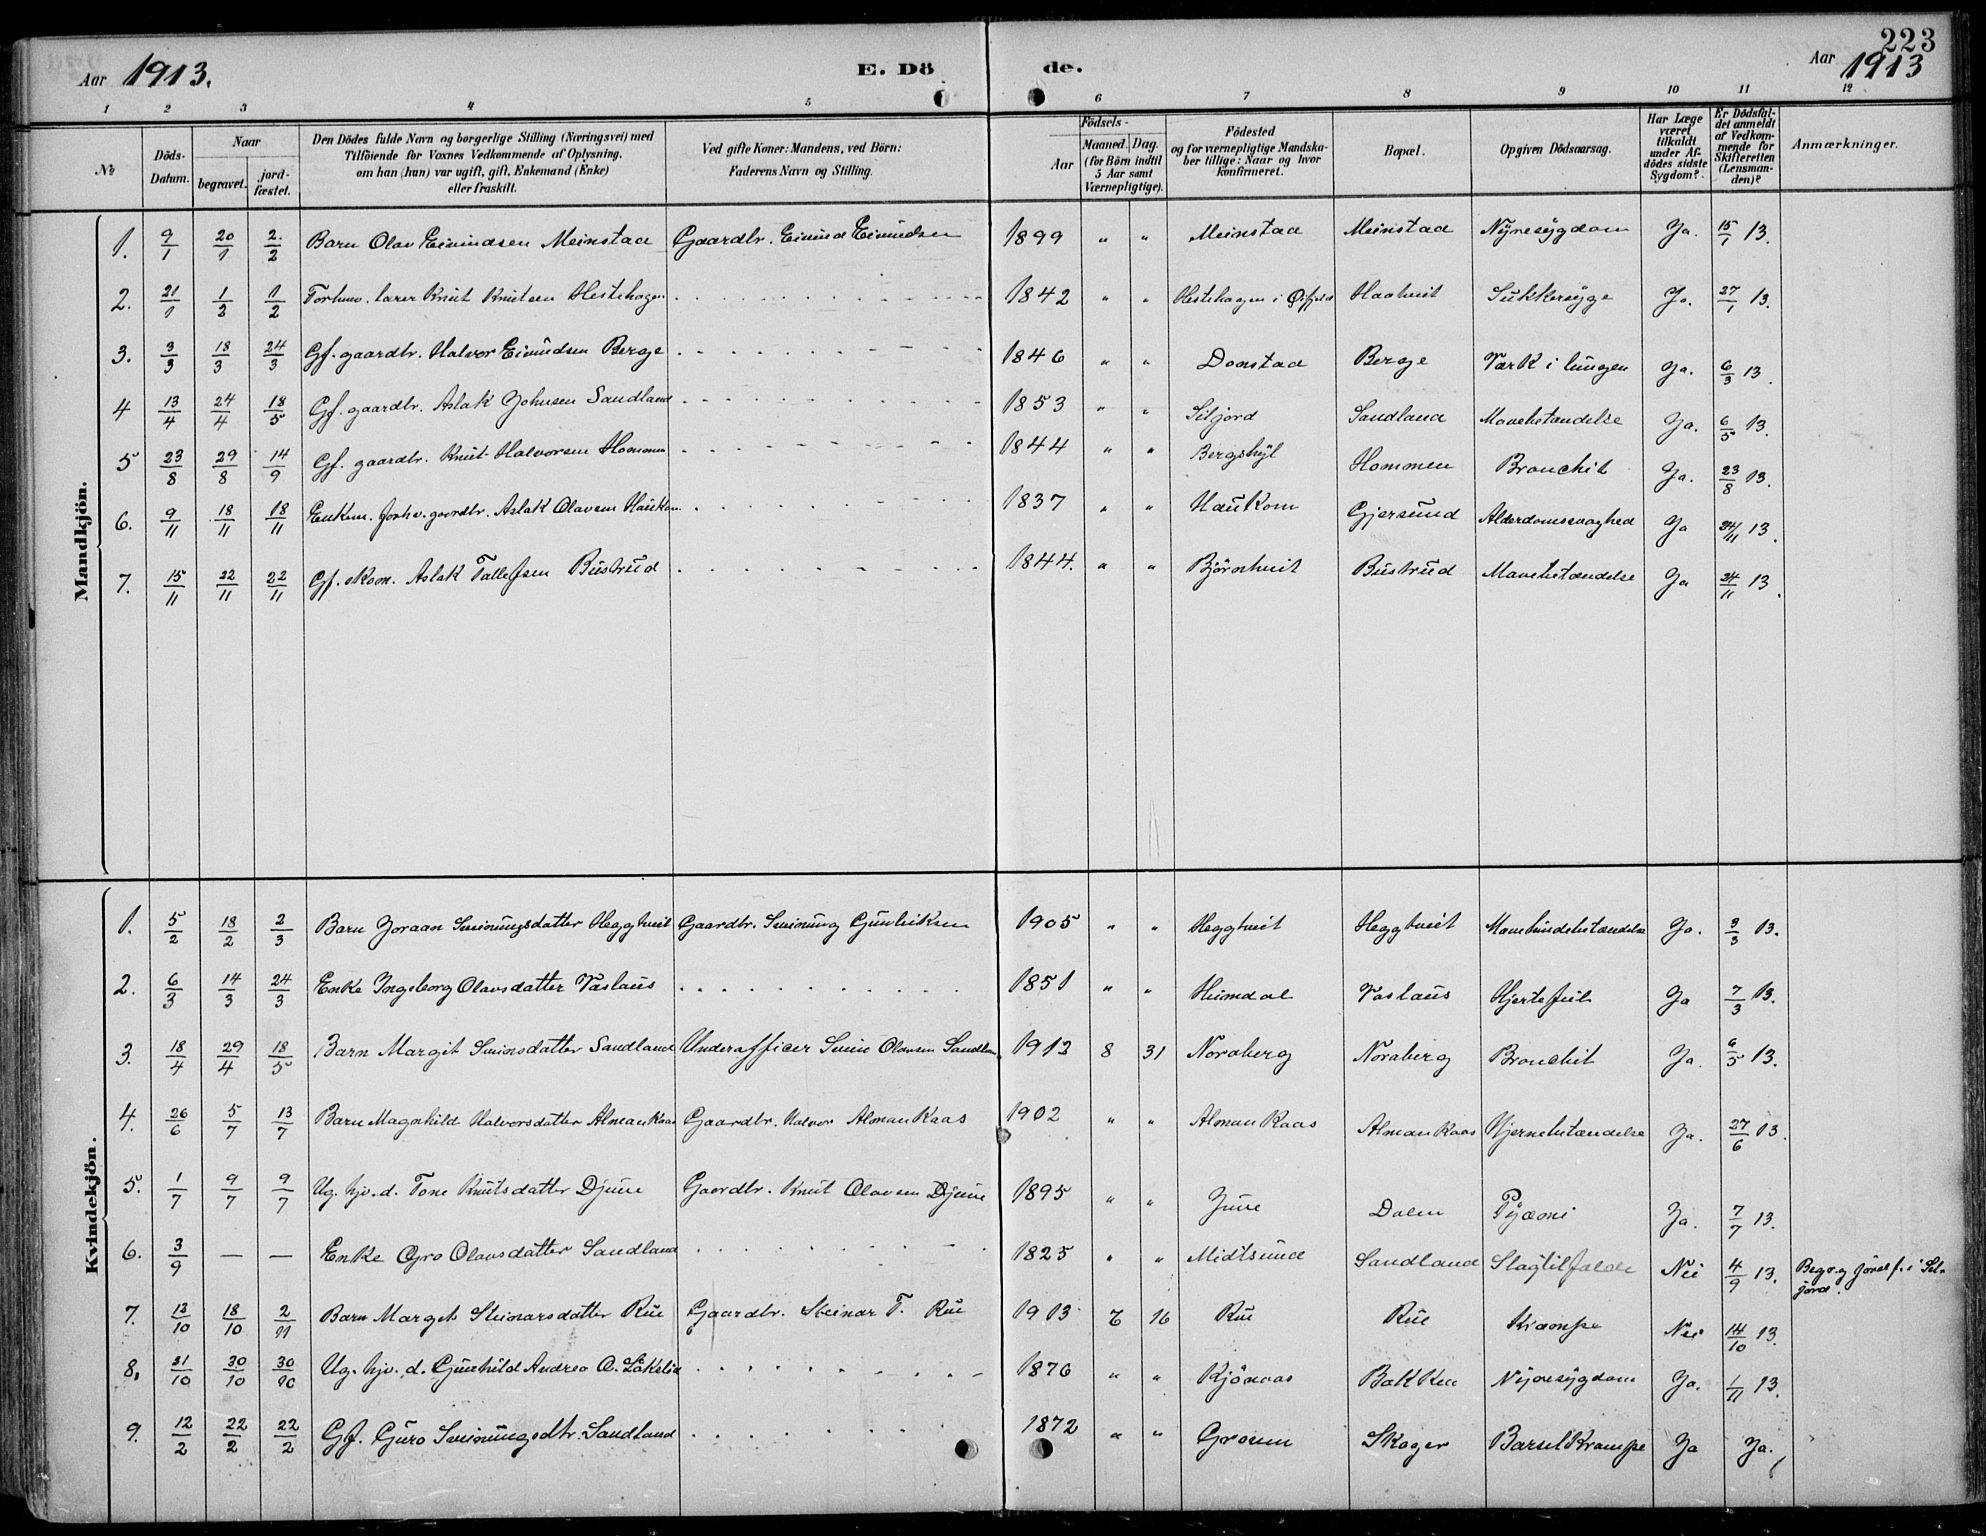 223
Aar 1913. E. Dö de. Aar 1913
1 2 3 4 5 6 7 8 9 10 11 12
№ Döds-Datum. Naar begravet. jord-fæstet. Den Dödes fulde Navn og borgerlige Stilling (Næringsvei) med Tilföiende for Voxnes Vedkommende af Oplysning. om han (hun) var ugift, gift, Enkemand (Enke) eller fraskilt. Ved gifte Koner: Mandens, ved Börn: Faderens Navn og Stilling. Födsels- Aar Maaned. Dag. (for Börn indtil 5 Aar samt Værnepligtige). Födested og for værnepligtige Mandska-ber tillige: Naar og hvor konfirmeret. Bopæl. Opgiven Dödsaarsag. Har Læge været tilkaldt under Af-dödes sidste Sygdom? Er Dödsfal-det anmeldt af Vedkom-mende for Skifteretten (Lensman-den)? Anmærkninger.
Mandkjön.
1. 9/1 20/1 2/2 Barn Olav Eivindsen Meinstad Gaardbr. Eivind Eivindsen 1899 " " Meinstad Meinstad Nyresygdom Ja. 15/1 13.
2. 21/1 1/2 1/2 Forhenv. lærer Knut Knutsen Hestehagen 1842 " " Hestehagen i Haatveit Sukkersyge Ja. 27/1 13.
3. 3/3 18/3 24/3 Gf. gaardbr. Halvor Eivindsen Berge 1846 " " Donstad Berge Værk i lungen Ja. 6/3 13.
4 13/4 24/4 18/5 Gf. gaardbr. Aslak Johnsen Sandland 1853 " " Siljord Sandland Mavebetændelse Ja. 6/5 13.
5 23/8 29/8 14/9 Gf. gaardbr. Knut Halvorsen Hommen 1844 " " Bergshyl Hommen Bronchit Ja. 23/8 13.
6. 9/11 18/11 18/11 Enkem. forhv. gaardbr. Aslak Olavsen Haukom 1837 " " Haukom Gjersund Alderdomssvaghed Ja 24/11 13.
7. 15/11 22/11 22/11 Gf. skom. Aslak Tallefsen Bustrud 1844. " " Bjørntveit Bustrud Mavebetændelse Ja 24/11 13.
Kvindekjön.
1. 5/2 18/2 2/3 Barn Joraan Sveinungsdatter Heggtveit Gaardbr. Sveinung Gunleiksen 1905 " " Heggtveit Heggtveit Mavehindebetændelse Ja. 3/3 13.
2. 6/3 14/3 24/3 Enke Ingeborg Olavsdatter Vaslaus 1851 " " Heimdal Vaslaus Hjertefeil Ja 7/3 13.
3. 18/4 29/4 18/5 Barn Margit Sveinsdatter Sandland Underofficer Svein Olavsen Sandland 1912 8 31 Noraberg Noraberg Bronchit Ja. 6/5 13.
4. 26/6 5/7 13/7 Barn Magnhild Halvorsdatter Almankaas Gaardbr. Halvor Almankaas 1902 " " Almankaas Almankaas Hjernebetændelse Ja. 27/6 13.
5. 1/7 9/7 9/7 Ug. hjv. d. Tone Knutsdatter Djuve Gaardbr. Knut Olavsen Djuve 1895 " " Juve Dalen Pyæmi Ja. 7/7 13.
6. 3/9 — — Enke Gyro Olavsdatter Sandland 1825 " " Midtsund Sandland Slagtilfælde Nei 4/9 13. Begr. og jordf. i Sil-
jord.
7. 12/10 18/10 2/11 Barn Margit Steinarsdatter Rue Gaardbr. Steinar T. Rue 1913 7 16 Rue Rue Krampe Nei 14/10 13.
8. 21/10 30/10 30/10 Ug. hjv. d. Gunhild Andrea O. 1876 " " Kjönaas Bakken Nyresygdom Ja. 1/11 13.
9. 12/2 22/2 22/2 Gf. Guro Sveinungsdtr. Sandland 1872 " " Groven Skoger Barselkrampe Ja Ja.